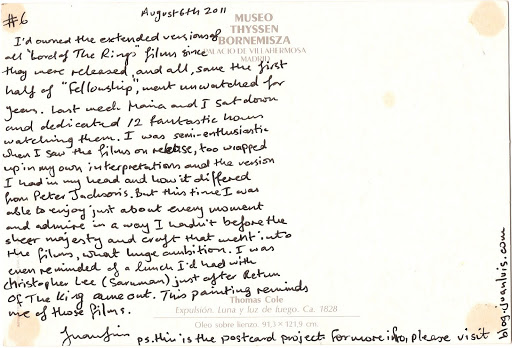 #6
August 6th 2011
MUSEO
THYSSEN
BORNEMISZA
PALACIO DE VILLAHERMOSA
MADRID
I'd owned the extended versions of
all "Lord of The Rings" films since
they were released, and all, save the first
half of "Fellowship", went unwatched for
years. Last week Maria and I sat down
and dedicated 12 fantastic hours
watching them. I was semi-enthusiastic
when I saw the films on release, too wrapped
up in my own interpretations and the version
I had in my head and how it differed
from Peter Jackson's. But this time I was
able to enjoy just about every moment
and admire in a way I hadn't before the
sheer majesty and craft that went into
the films, what huge ambition. I was
even reminded of a lunch I'd had with
Christopher Lee (Saruman) just after Return
Of The King came out. This painting reminds
me of those films.
Thomas Cole
Expulsión. Luna y luz de fuego. Ca. 1828
Oleo sobre lienzo. 91,3 x 121,9 cm.
Juanluis
ps. this is the postcard project. For more info, please visit
blog.juanluis.com